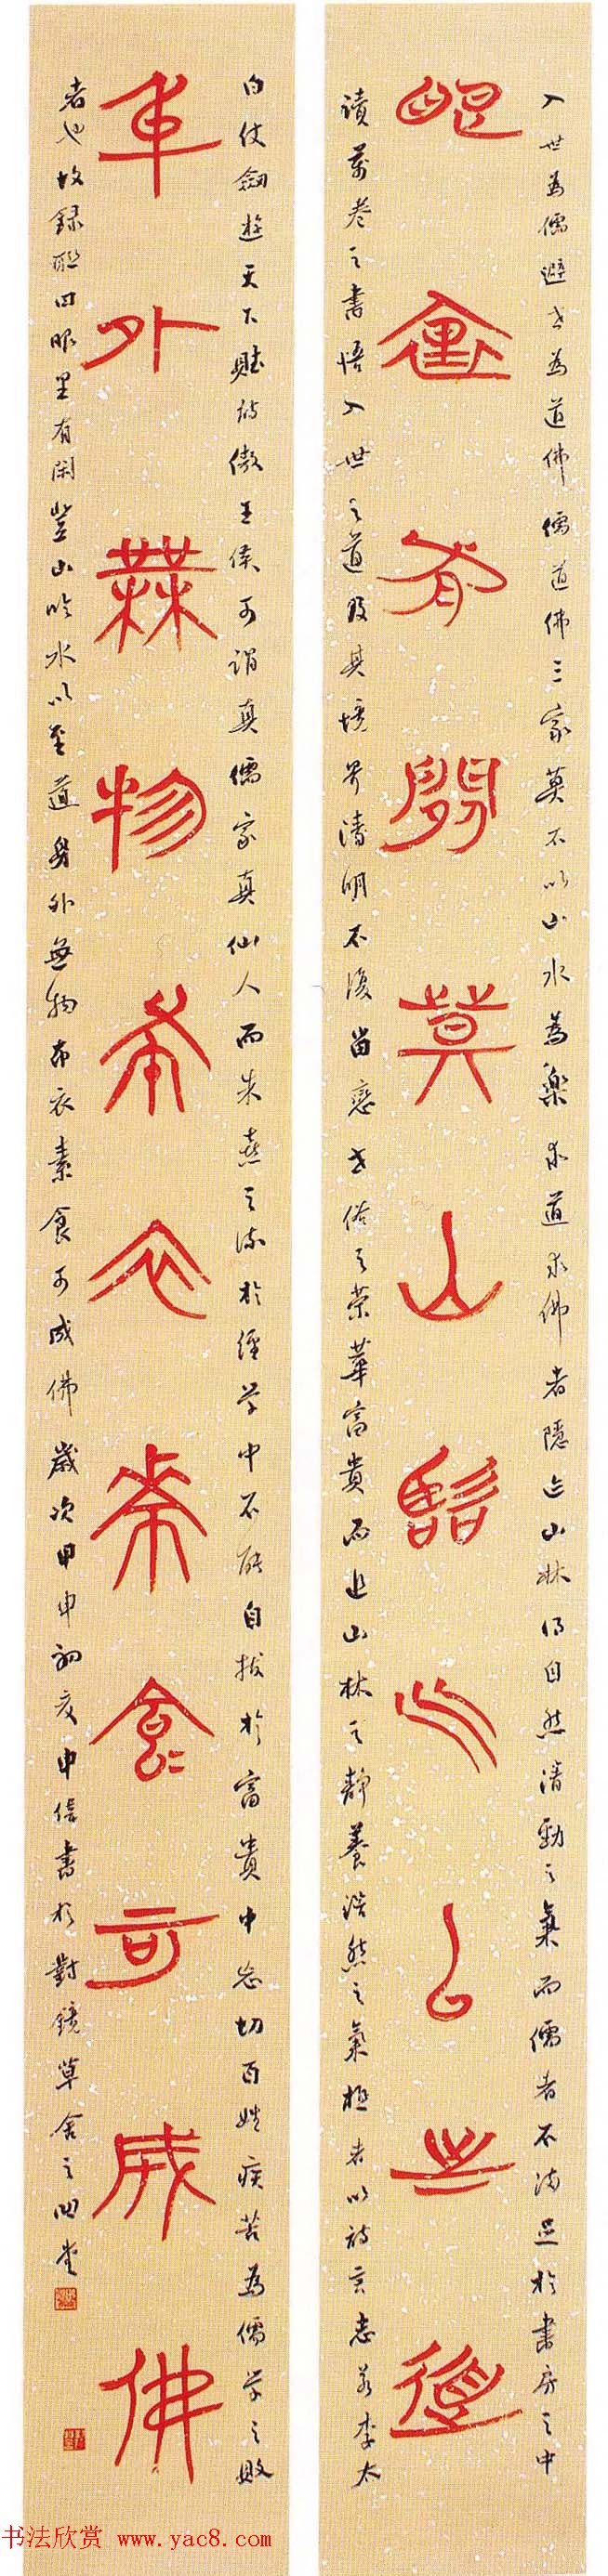 眼裏有閒登山臨水以至道
身外無物布衣素食可成佛
入世為儒避世為道佛儒道佛三家莫不以山水為樂求道求佛者隱迹山林得自然清勁之氣而儒者不滿足於書房之中
讀萬卷之書悟入世之道及其境界清明不復留戀世俗之榮華富貴而進山林之靜養浩然之氣極者以詩言志若李太
白仗劍遊天下賦詩傲王侯可謂真儒家真仙人而朱熹之流於經學中不能自拔於富貴中忘切百姓疾苦為儒學之敗
者也故錄聯曰眼里有閑登山吟水以至道身外無物布衣素食可成佛歲次甲申初夏申偉書於對鏡草舍之西堂
书法欣赏 www.yac8.com